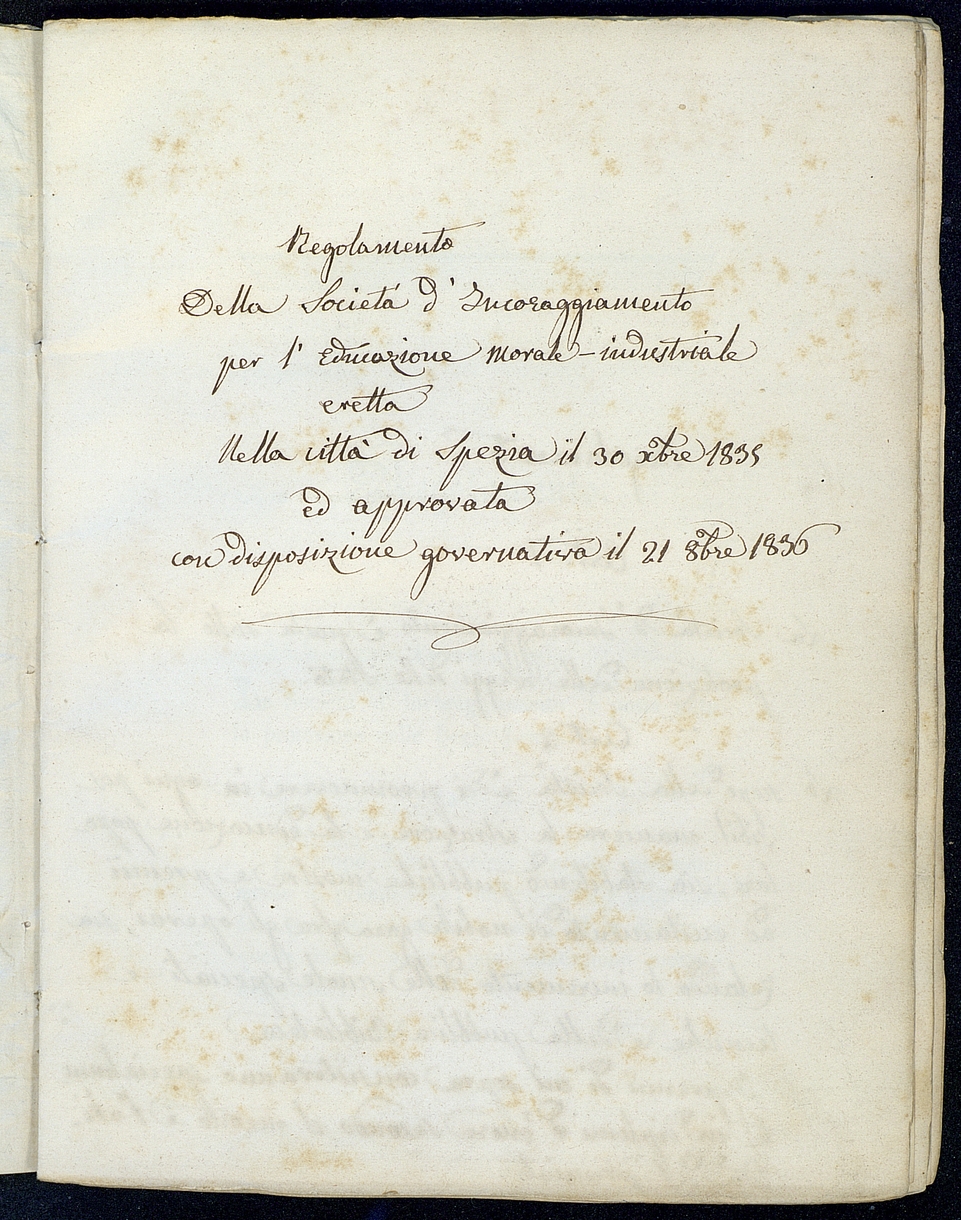 Regolamento
Della Società d'Incoraggiamento
per l'Educazione morale-industriale
eretta
Nella città di Spezia il 30 xbre 1835
ed approvata
con disposizione governativa il 21 8bre 1836